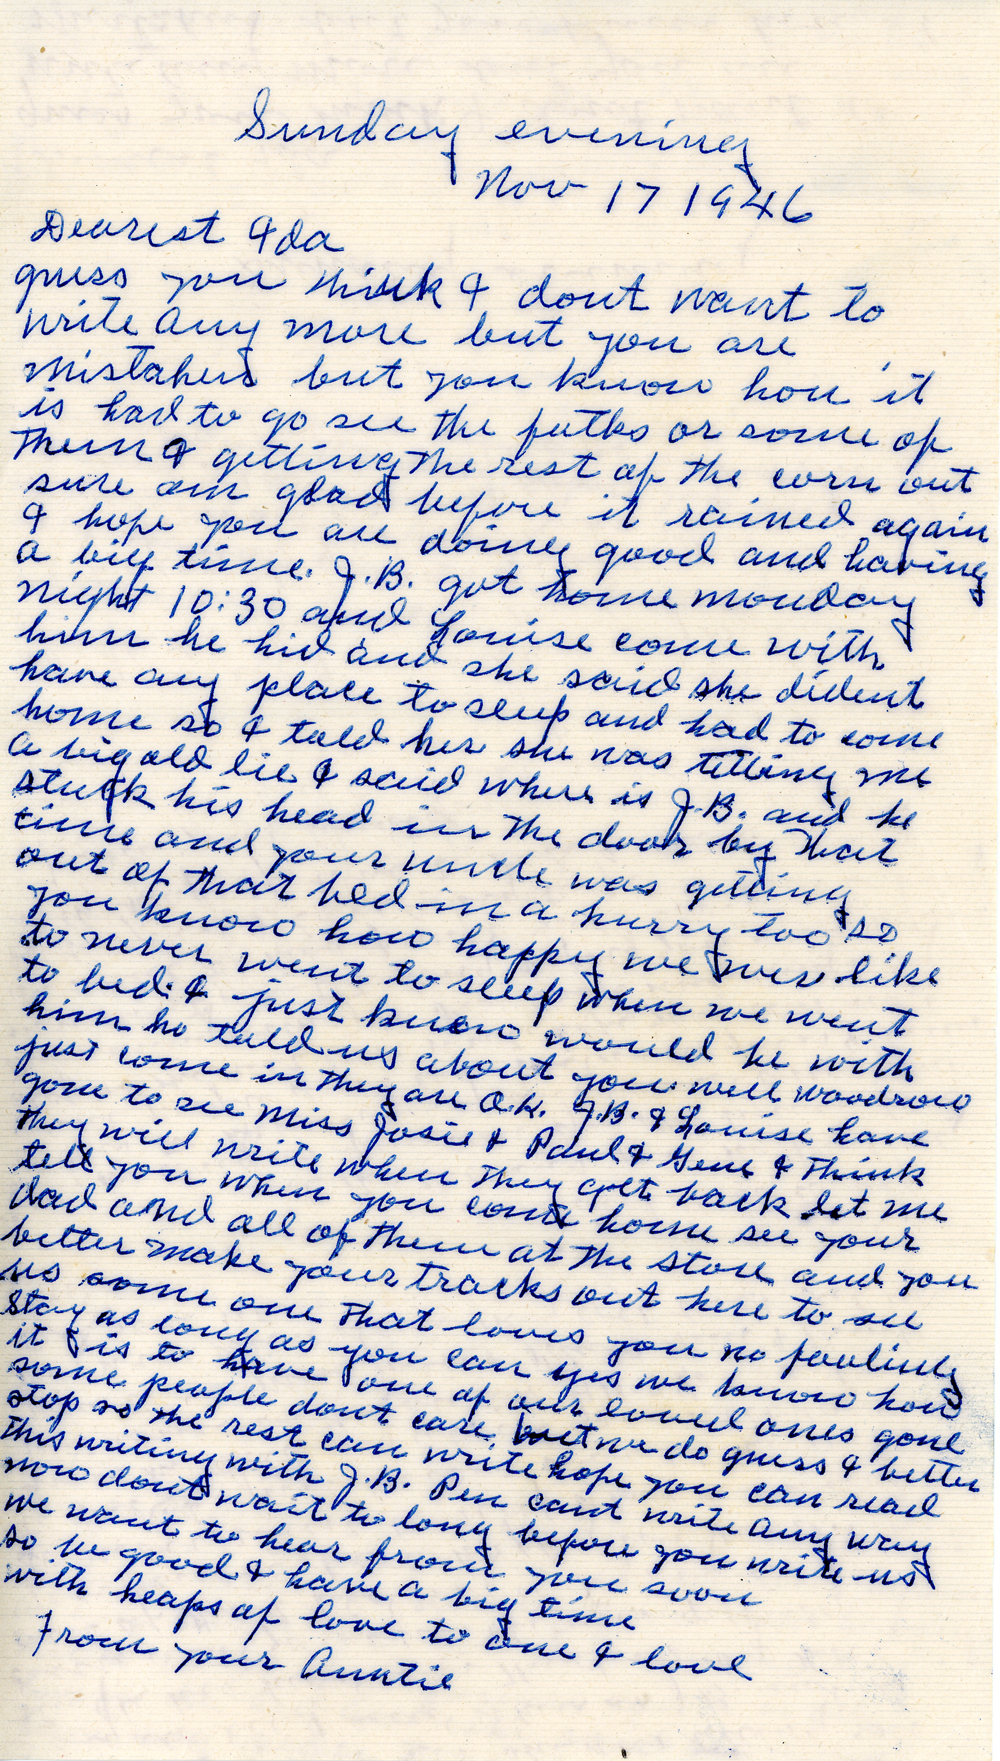 Sunday evening
Nov 17 1946
Dearest Ida
guess you think I dont want to
write any more but you are
mistaken but you know how it
is had to go see the folks or some of
them & getting the rest of the corn out
sure am glad before it rained again
I hope you are doing good and having
a big time. J.B. got home monday
night 10:30 and Louise come with
him he hid and she said she dident
have any place to sleep and had to come
home so I told her she was telling me
a big old lie I said where is J.B. and he
stuck his head in the door by that
time and your uncle was getting
out of that bed in a hurry too so
you know how happy we were like
to never went to sleep when we went
to bed. I just know would be with
him he told us about you well woodrow
just come in they are O.K. J.B. & Louise have
gone to see Miss Josie & Paul & Gene I think
they will write when they get back let me
tell you when you come home see your
dad and all of them at the store and you
better make your tracks out here to see
us some one that loves you no fooling
stay as long as you can yes we know how
it is to have one of our loved ones gone
some people dont care but we do guess I better
stop so the rest can write hope you can read
this writing with J.B. Pen cant write any way
now dont wait to long before you write us
we want to hear from you soon
so be good & have a big time
with heaps of love to one I love
From your Auntie